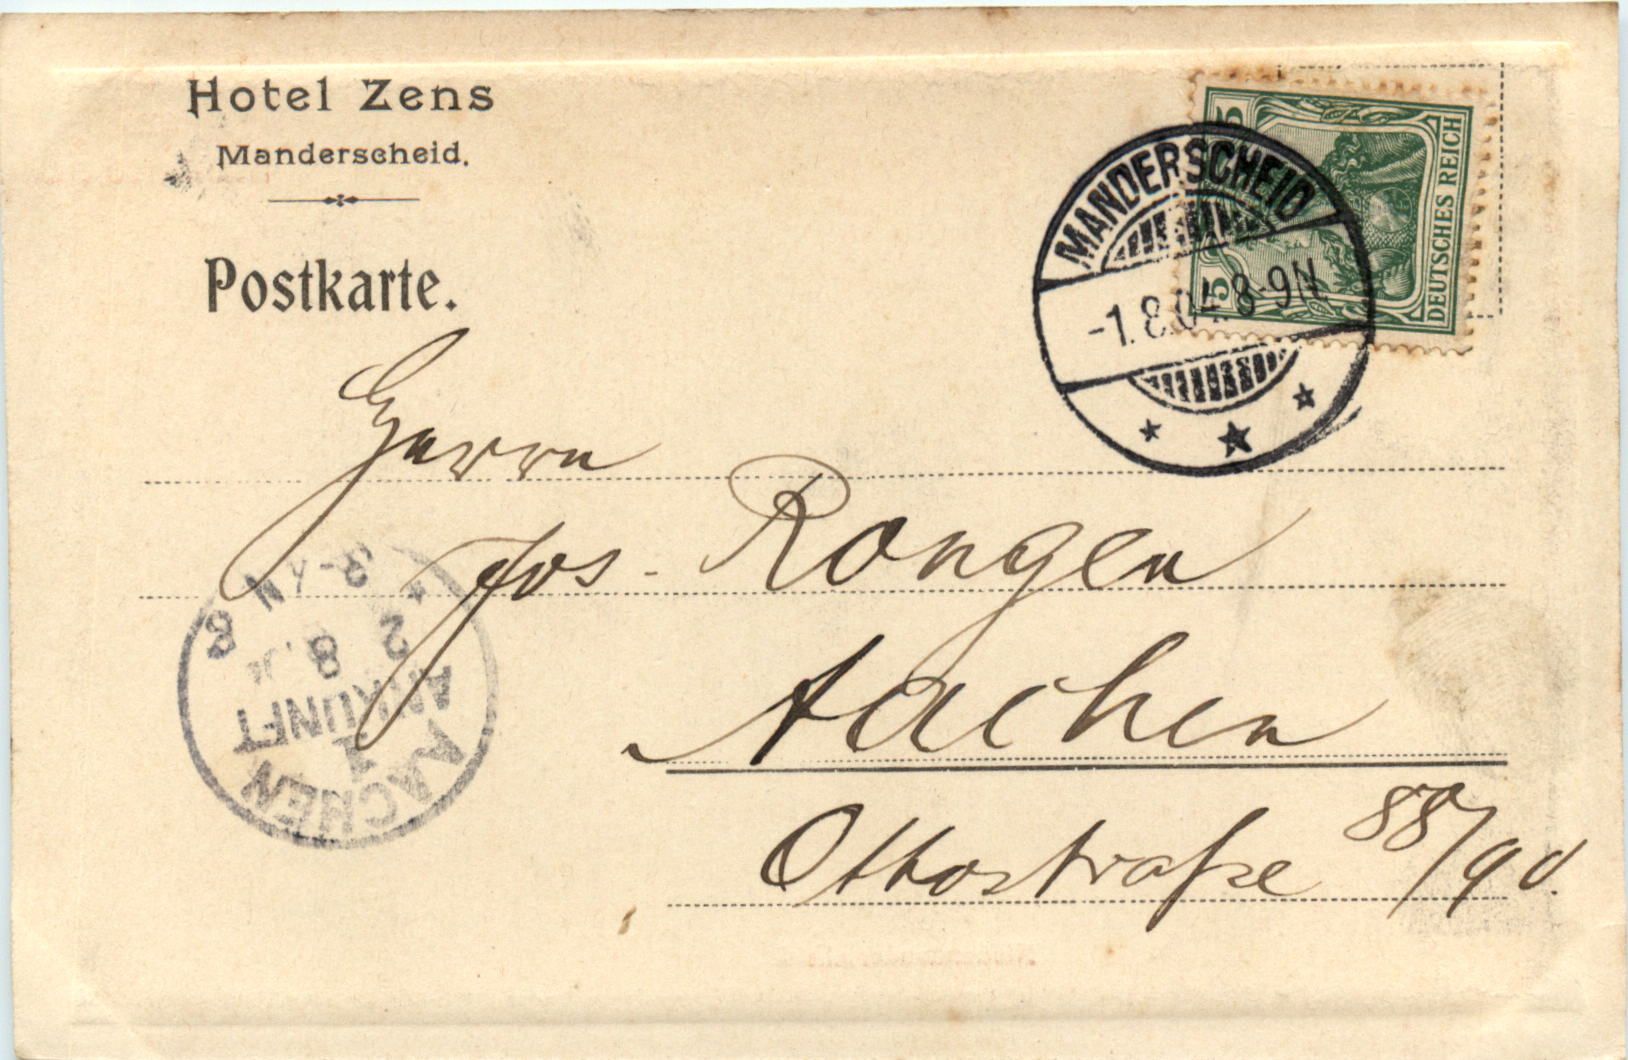 Hotel Zens
Manderscheid.
Postkarte.
5
5
DEUTSCHES REICH
MANDERSCHEID
-1.8.04. 8-9N.
Herrn
Jos. Rongen
Aachen
Ottostraße 88/90.
AACHEN
1
ANKUNFT
2 8
8-9N
8